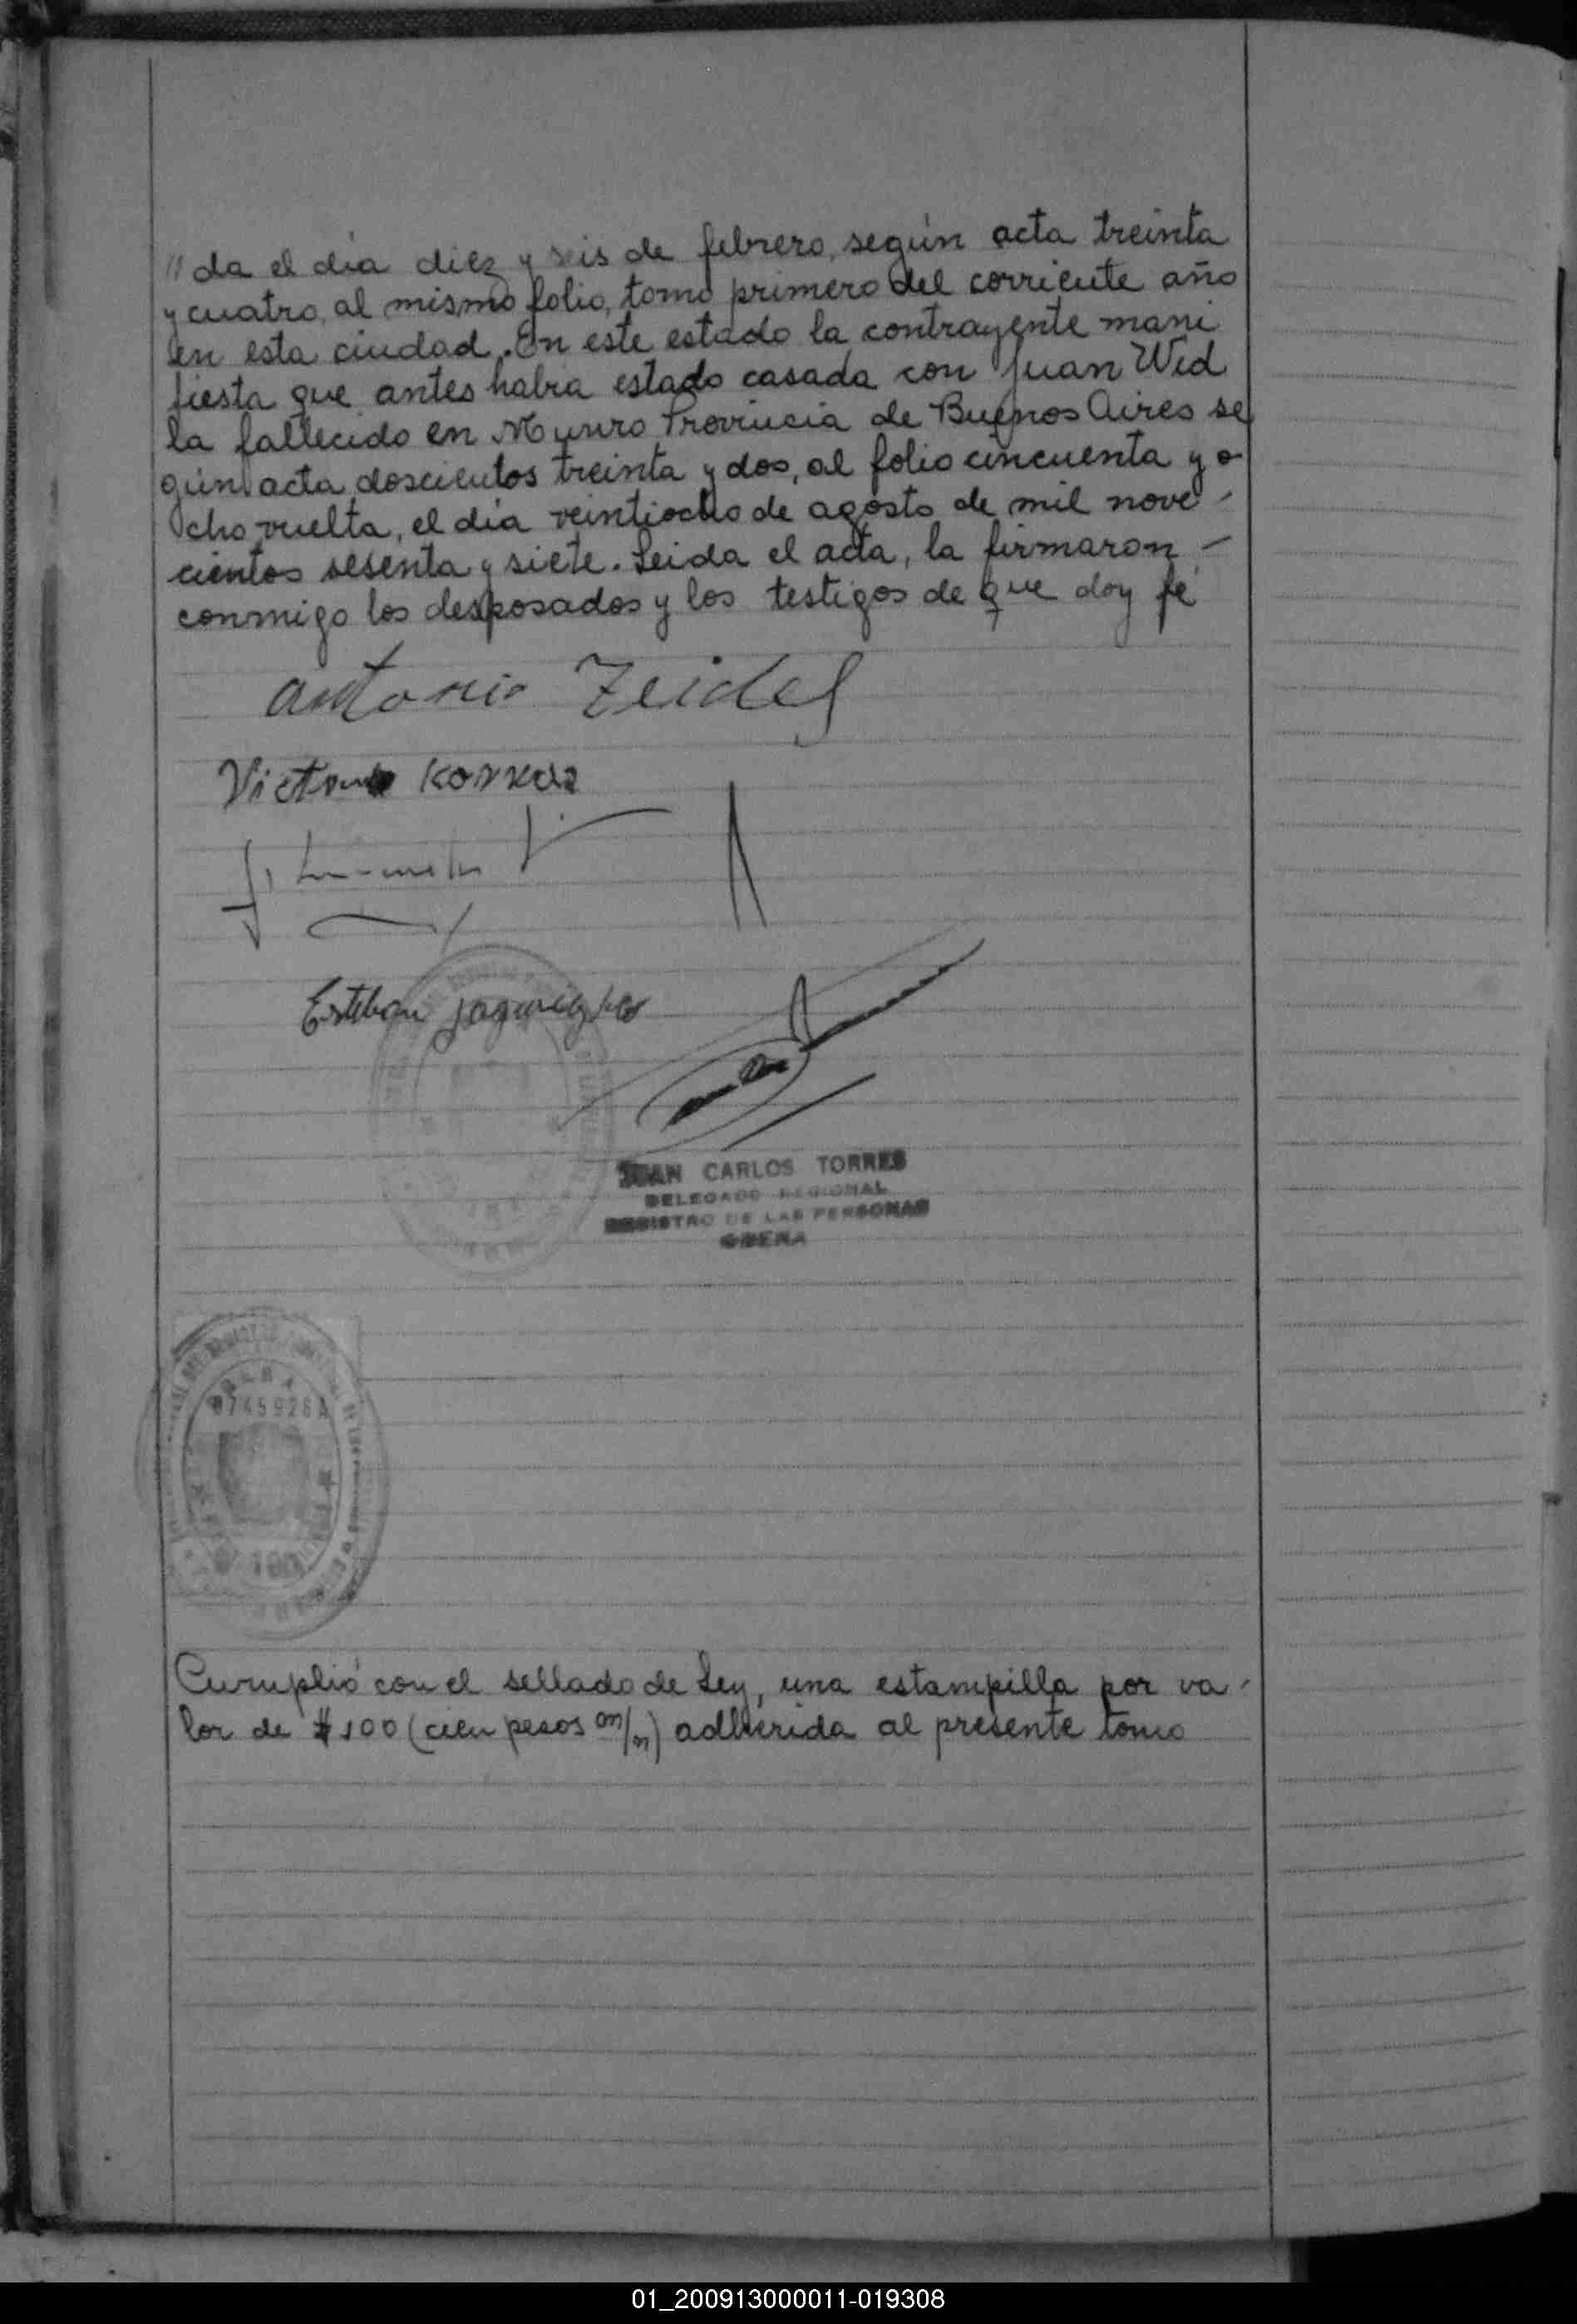 // da el día diez y seis de febrero, según acta treinta
y cuatro, al mismo folio, tomo primero del corriente año
en esta ciudad. En este estado la contrayente mani
fiesta que antes habia estado casada con Juan Wed
la fallecido en Munro Provincia de Buenos Aires se
gún acta doscientos treinta y dos, al folio cincuenta y o
cho vuelta, el día veintiocho de agosto de mil nove -
cientos sesenta y siete. Leida el acta, la firmaron -
conmigo los desposados y los testigos de que doy fé
antonio Zeidel
Esteban
JUAN CARLOS TORRES
DELEGADO REGIONAL
REGISTRO DE LAS PERSONAS
OBERA
0745926A
100
Cumplió con el sellado de Ley, una estampilla por va -
lor de $ 100 (cien pesos m/n) adherida al presente tomo
01_200913000011-019308